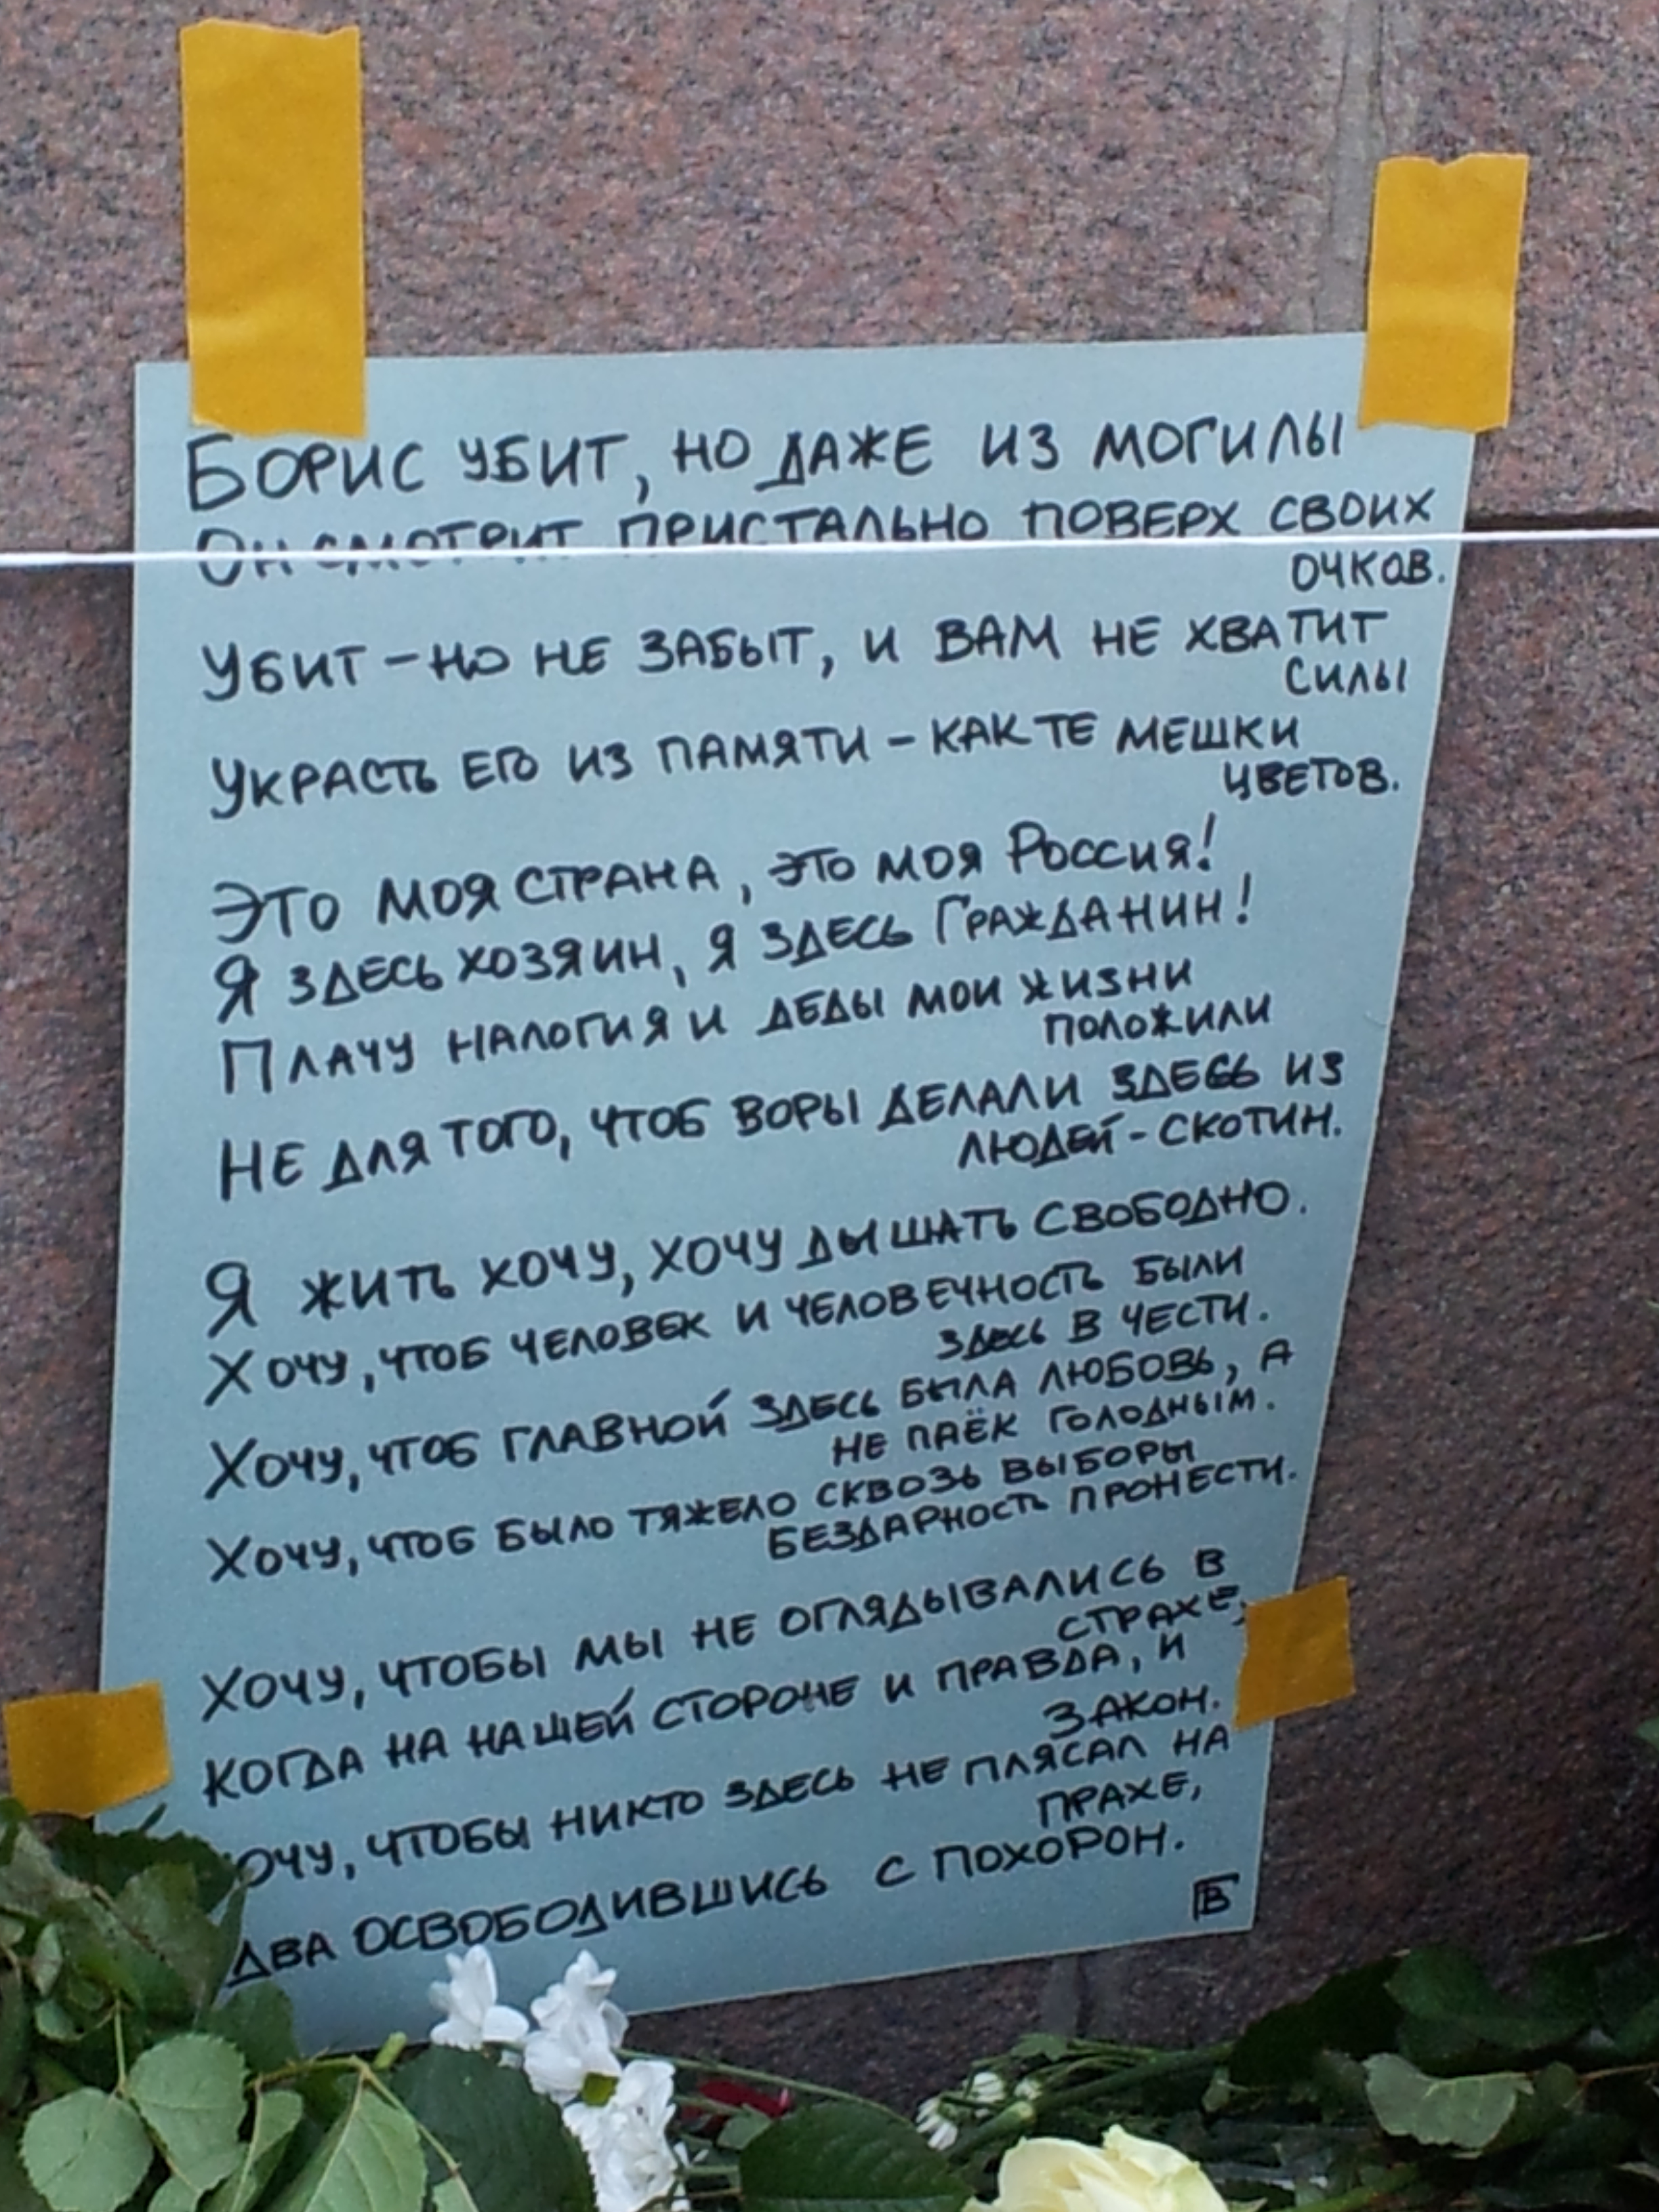 Борис убит, но даже из могилы
Он смотрит пристально поверх своих
очков.
Убит – но не забыт, и вам не хватит
силы
Украсть его из памяти – как те мешки
цветов.
Это моя страна, это моя Россия!
Я здесь хозяин, я здесь Гражданин!
Плачу налогия и деды мои жизни
положили
Не для того, чтоб воры делали здесь из
людей – скотин.
Я жить хочу, хочу дышать свободно.
Хочу, чтоб человек и человечность были
здесь в чести.
Хочу, чтоб главной здесь была любовь, а
не паёк голодным.
Хочу, чтоб было тяжело сквозь выборы
бездарность пронести.
Хочу, чтобы мы не оглядывались в
страхе,
когда на нашей стороне и правда, и
закон.
Хочу, чтобы никто здесь не плясал на
прахе,
Два освободившись с похорон.